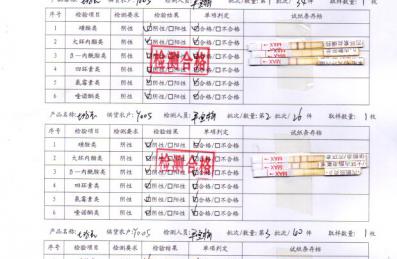 产品名称: 供货农户:Y005 检测人员: 批次/数量:第1 批次/34件 取样数量:1 枚
序号 检验项目 检测要求 检验结果 单项判定 试纸条存档
1 磺胺类 阴性 ☑阴性/□阳性 ☑合格/□不合格
2 大环内酯类 阴性 ☑阴性/□阳性 ☑合格/□不合格
3 β-内酰胺类 阴性 ☑阴性/□阳性 ☑合格/□不合格
4 四环素类 阴性 ☑阴性/□阳性 ☑合格/□不合格
5 氨霉素类 阴性 ☑阴性/□阳性 ☑合格/□不合格
6 喹诺酮类 阴性 ☑阴性/□阳性 ☑合格/□不合格
检测合格
MAX
产品名称: 供货农户:Y005 检测人员: 批次/数量:第2 批次/26件 取样数量:1 枚
序号 检验项目 检测要求 检验结果 单项判定 试纸条存档
1 磺胺类 阴性 ☑阴性/□阳性 ☑合格/□不合格
2 大环内酯类 阴性 ☑阴性/□阳性 ☑合格/□不合格
3 β-内酰胺类 阴性 ☑阴性/□阳性 ☑合格/□不合格
4 四环素类 阴性 ☑阴性/□阳性 ☑合格/□不合格
5 氨霉素类 阴性 ☑阴性/□阳性 ☑合格/□不合格
6 喹诺酮类 阴性 ☑阴性/□阳性 ☑合格/□不合格
检测合格
MAX MAX
产品名称: 供货农户:Y005 检测人员: 批次/数量:第3 批次/40件 取样数量:1 枚
序号 检验项目 检测要求 检验结果 单项判定 试纸条存档